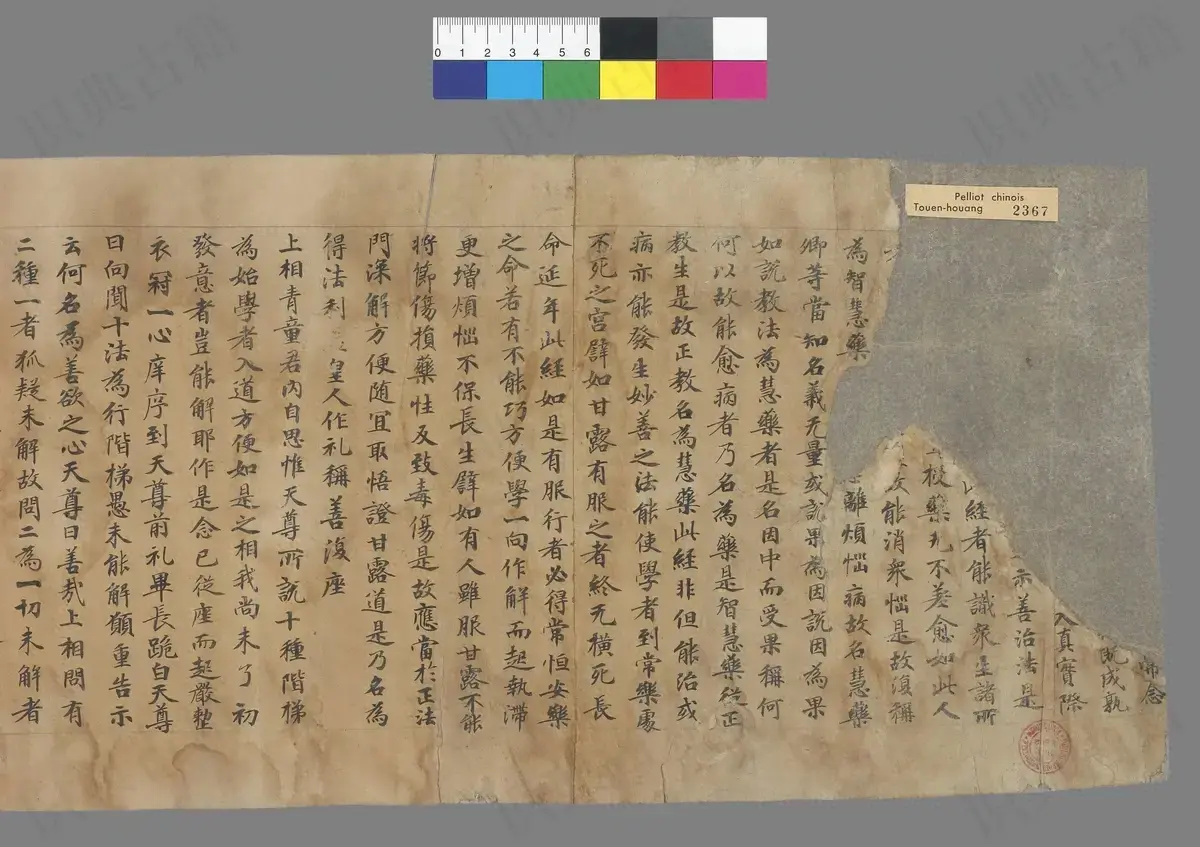 Pelliot chinois
Touen-houang 2367
0 1 2 3 4 5 6
識典古籍
帝念
既成孰
入真實際
示善治法是
經者能識衆生諸所
校藥无不差愈如此人
能消衆惱是故復稱
離煩惱病故名慧藥
為智慧藥
卿等當知名義无量或説果為因説因為果
如説教法為慧藥者是名因中而受果稱何
何以故能愈病者乃名為藥是智慧藥從正
教生是故正教名為慧藥此經非但能治或
病亦能發生妙善之法能使學者到常樂處
不死之宮譬如甘露有服之者終无橫死長
命延年此經如是有服行者必得常恒安樂
之命若有不能巧方便學一向作解而起執滯
更增煩惱不保長生譬如有人雖服甘露不能
將節傷損藥性及致毒傷是故應當於正法
門深解方便随宜取悟證甘露道是乃名為
得法利 皇人作礼稱善復座
上相青童君内自思惟天尊所説十種階梯
為始學者入道方便如是之相我尚未了初
發意者豈能解耶作是念已從座而起嚴整
衣冠一心庠序到天尊前礼畢長跪白天尊
曰向聞十法為行階梯愚未能解願重告示
云何名為善欲之心天尊曰善哉上相問有
二種一者狐疑未解故問二為一切未解者